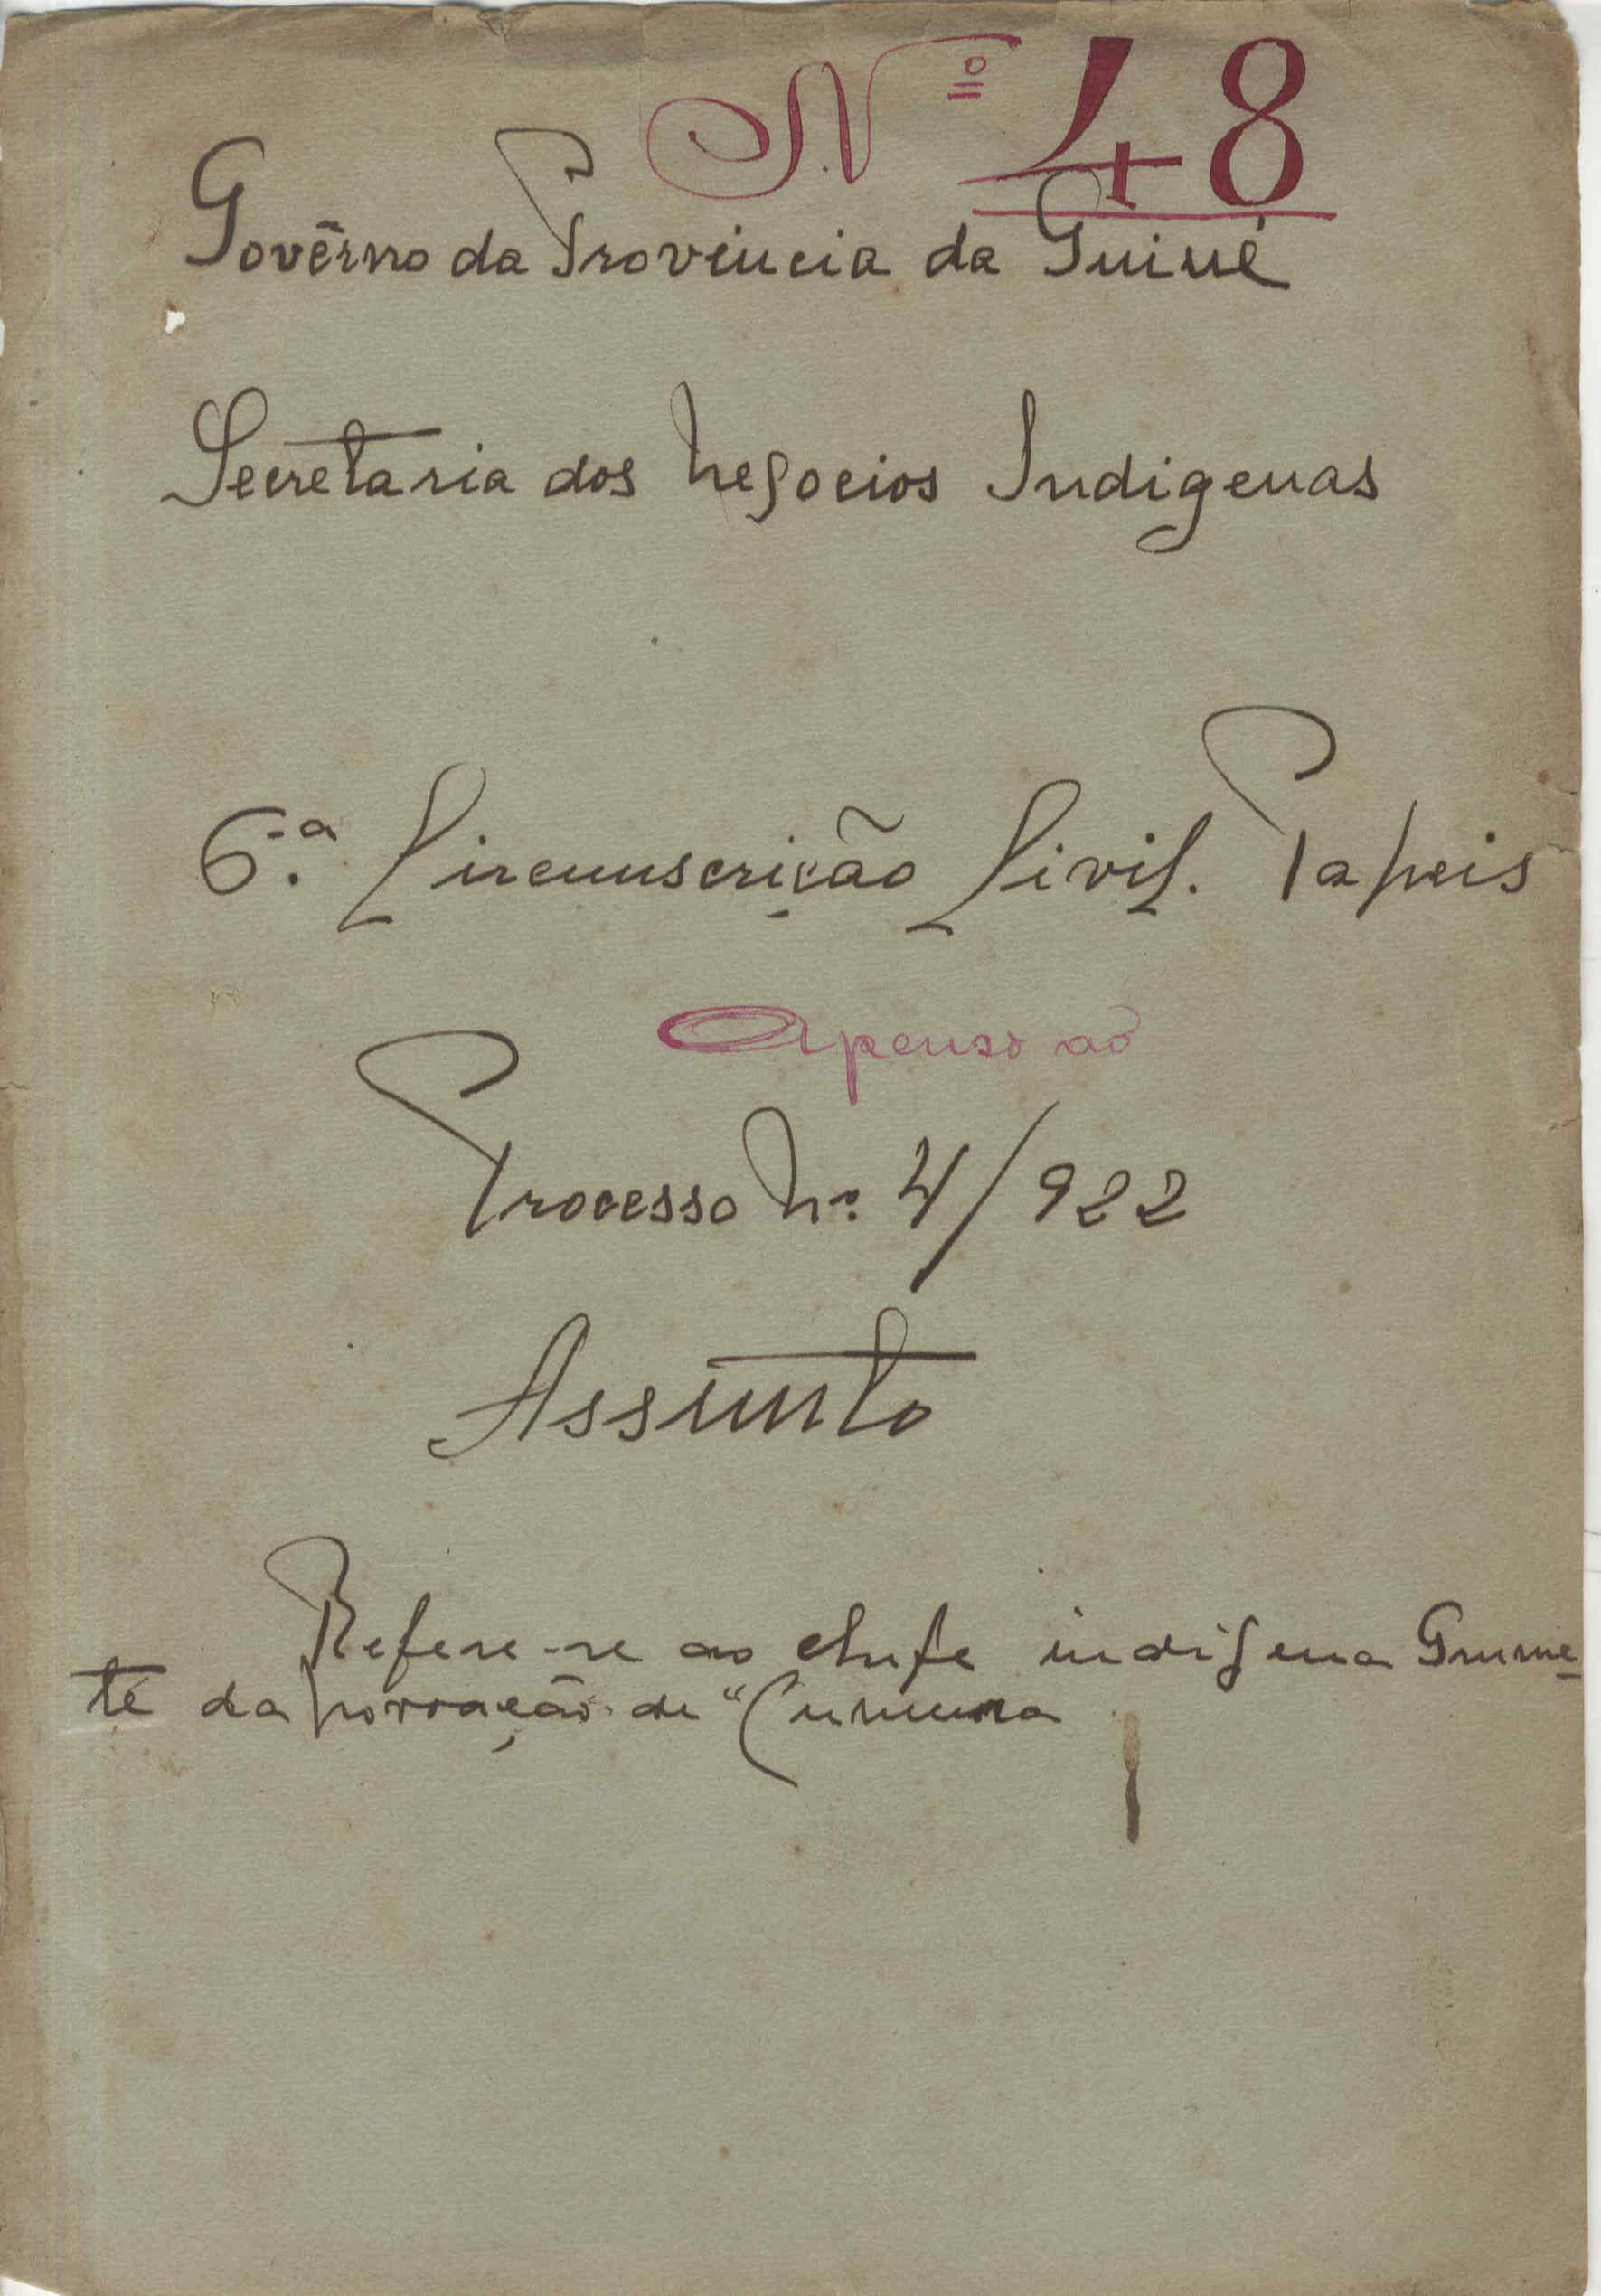 Nº 48
Govêrno da Provincia da Guiné
Secretaria dos Negocios Indigenas
6.ª Circunscrição Civil. Papeis
Apenso ao
Processo Nº. 4/922
Assunto
Refere-se ao chefe indigena Grume-
te da povoação de "